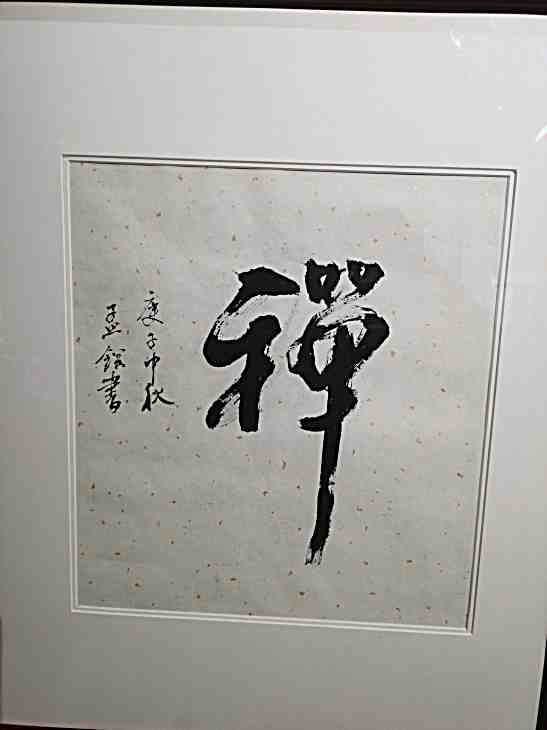 禪
庚子中秋
孟銳書